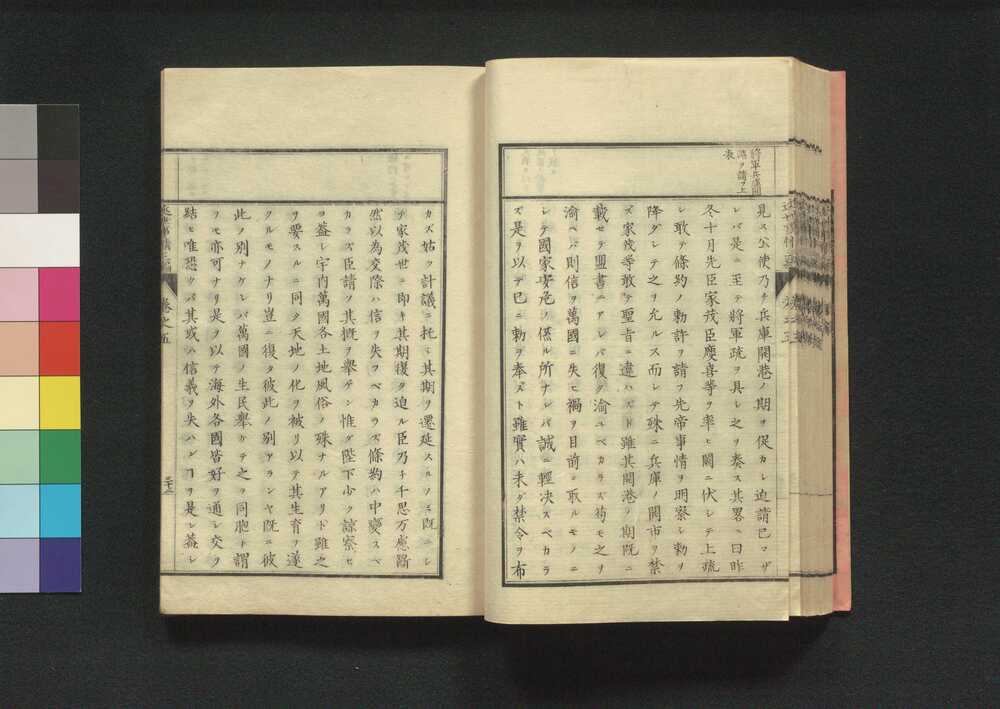 將軍兵庫開
港ヲ請フ上
表
見ス公使乃チ兵庫開港ノ期ヲ促カシ迫請已マザ
レバ是ニ至テ將軍疏ヲ具シ之ヲ奏ス其畧ニ曰昨
冬十月先臣家茂臣慶喜等ヲ率ヒ闕ニ伏シテ上疏
シ敢テ條約ノ勅許ヲ請フ先帝事情ヲ明察シ勅ヲ
降ダシテ之ヲ允ルス而シテ殊ニ兵庫ノ開市ヲ禁
ズ家茂等敢テ聖旨ニ違ハズト雖其開港ノ期既ニ
載セテ盟書ニアレバ復ダ渝ユベカラズ苟モ之ヲ
渝ベバ則信ヲ萬國ニ失ヒ禍ヲ目前ニ取ルモノニ
シテ國家安危ノ係ル所ナレバ誠ニ輕决スベカラ
ズ是ヲ以テ已ニ勅ヲ奉ズト雖實ハ未ダ禁令ヲ布
カズ姑ク計議ニ托シ其期ヲ遷延スルノミ既ニシ
テ家茂世ニ即キ其期復タ迫ル臣乃チ千思万慮竊
然以為交際ハ信ヲ失フベカラズ條約ハ中變スベ
カラズ臣請ソノ概ヲ擧テン惟ダ陛下少ク諒察セ
ヨ蓋シ宇内萬國各土地風俗ノ殊ナルアリト雖之
ヲ要スルニ同ク天地ノ化ヲ被リ以テ其生育ヲ遂
クルモノナリ豈ニ復タ彼此ノ別アランヤ既ニ彼
此ノ別ナケレバ萬國ノ生民擧ゲテ之ヲ同胞ト謂
フモ亦可ナリ是ヲ以テ海外各國皆好ヲ通シ交ヲ
結ヒ唯恐クバ其或ハ信義ヲ失ハンコヲ是レ蓋シ
卷之五